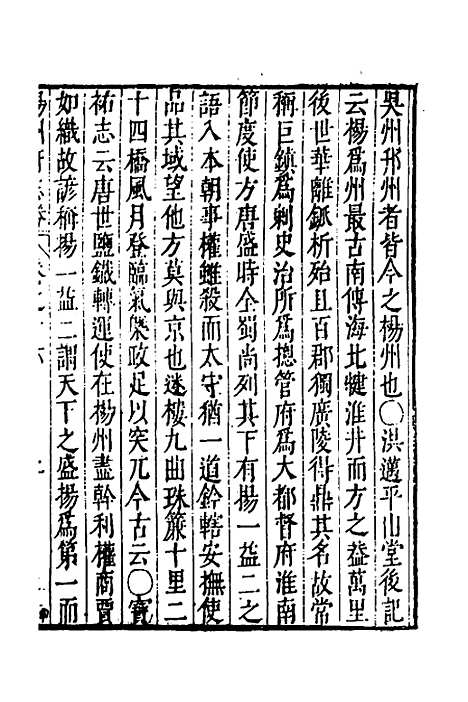 吳州邗州者皆今之楊州也〇洪邁平山堂後記
云楊爲州最古南傅海北犍淮井而方之葢萬里
後世華離鈲析殆且百郡獨廣陵得鼎其名故常
稱巨鎮爲剌史治所爲摠管府爲大都督府淮南
節度使方唐盛時全蜀尚列其下有楊一益二之
語入本朝事權雖殺而太守猶一道鈐轄安撫使
品其域望他方莫與京也迷樓九曲珠簾十里二
十四橋風月登臨氣槩政足以突兀今古云〇寳
祐志云唐世鹽鐵轉運使在楊州盡幹利權商賈
如織故諺稱揚一益二謂天下之盛揚爲第一而